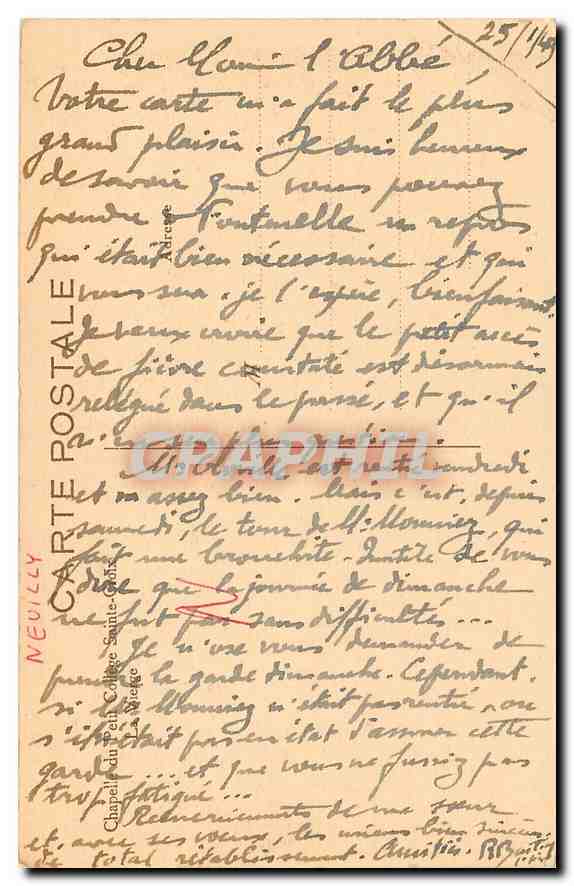 25/1/45
Cher Monsieur l'Abbé,
Votre carte m'a fait le plus
grand plaisir. Je suis heureux
de savoir que vous pouvez
prendre à Fontenelle un repos
qui était bien nécessaire et qui
vous sera, je l'espère, bienfaisant.
Je veux croire que le petit accès
de fièvre constaté est désormais
relégué dans le passé, et qu'il
n'en plus
M. est rentré vendredi
et assez bien. Mais c'est, depuis
samedi, le tour de M. Mounier, qui
fait une bronchite. Inutile de vous
dire que la journée de dimanche
ne fut pas sans difficultés...
Je n'ose vous demander de
prendre la garde dimanche. Cependant,
si M. Mounier n'était pas rentré, ou
s'il n'était pas en état d'assurer cette
garde... et que vous ne fussiez pas
trop fatigué...
Remerciements de ma sœur
et, avec ses vœux, les miens bien sincères
de total rétablissement. Amitiés.
CARTE POSTALE
Adresse
M
Chapelle du Petit Collège Sainte-Croix
La Vierge
NEUILLY
CPAPHIL